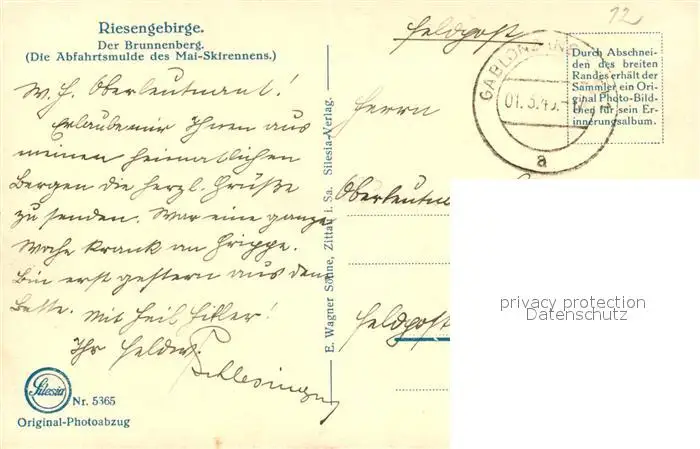 Riesengebirge.
Der Brunnenberg.
(Die Abfahrtsmulde des Mai-Skirennens.)
W. H. Oberleutnant!
Erlaube mir Ihnen aus
meinen heimatlichen
Bergen die herzl. Grüße
zu senden. War eine ganze
Woche krank an Grippe.
Bin erst gestern aus dem
Bette. Mit Heil Hitler!
Ihr Feldw.
Schlesinger
Silesia
Nr. 5365
Original-Photoabzug
E. Wagner Söhne, Zittau i. Sa. Silesia-Verlag.
Feldpost
12
GABLONZ
01. 3. 4
a
Durch Abschnei-
den des breiten
Randes erhält der
Sammler ein Ori-
ginal Photo-Bild-
chen für sein Er-
innerungsalbum.
Herrn
Oberleutn
Feldpost
privacy protection
Datenschutz